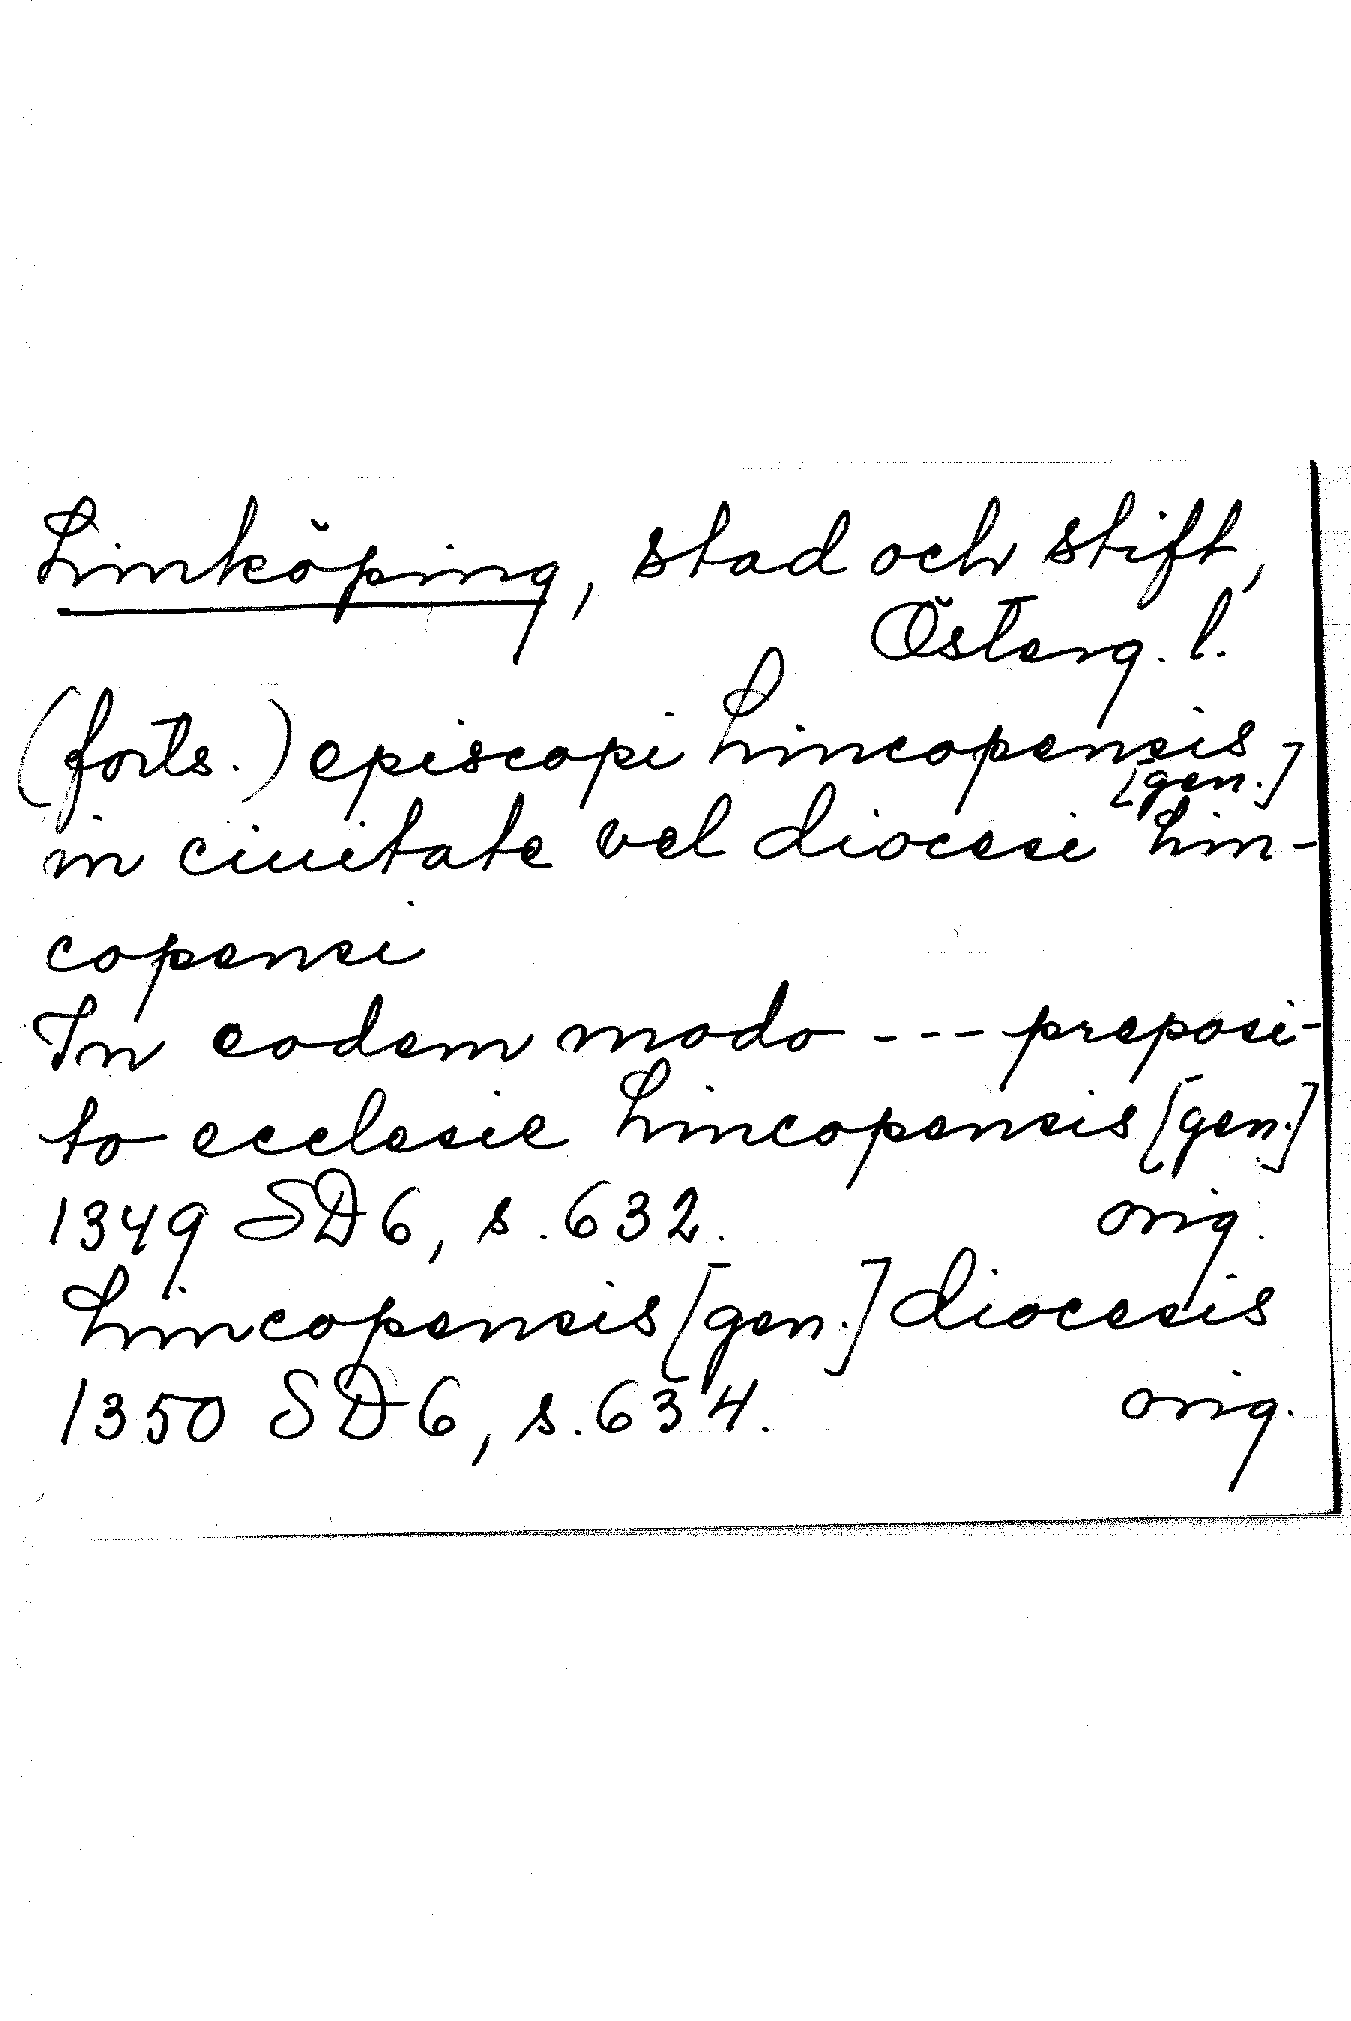 Linköping, stad och stift,
Österg. l.
(forts.) episcopi Lincopensis
[gen.]
in ciuitate vel diocesi Lin-
copensi
In eodem modo --- preposi-
to ecclesie Lincopensis [gen.]
1349 SD 6, s. 632. orig.
Lincopensis [gen.] diocesis
1350 SD 6, s. 634. orig.